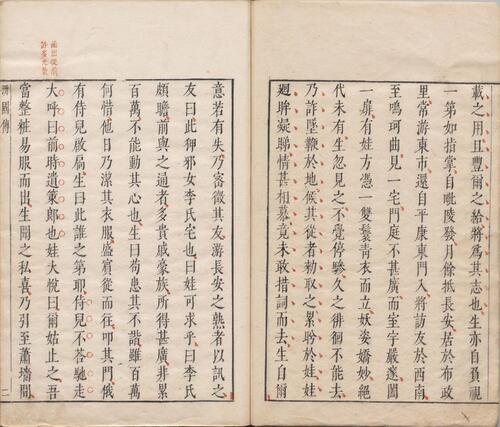 載之用且豐爾之給將爲其志也生亦自負視
一第如指掌自毗陵發月餘抵長安居於布政
里常游東市還自平康東門入將訪友於西南
至鳴珂曲見一宅門庭不甚廣而室宇嚴邃闔
一扉有娃方憑一雙鬟青衣而立妖姿嬌妙絕
代未有生忽見之不覺停驂久之徘徊不能去
乃詐墜鞭於地候其從者勑取之累盻於娃娃
廻眸凝睇情甚相慕竟未敢措詞而去生自爾
意若有失乃密徵其友游長安之熟者以訊之
友曰此狎邪女李氏宅也曰娃可求乎曰李氏
頗贍前與之通者多貴戚豪族所得甚廣非累
百萬不能動其心也生曰苟患其不諧雖百萬
何惜他日乃潔其衣服盛賓從而往叩其門俄
有侍兒啟扃生曰此誰之第耶侍兒不答馳走
大呼曰前時遺策郎也娃大悅曰爾姑止之吾
當整粧易服而出生聞之私喜乃引至蕭墻間
画出
許多光
汧國傳 二